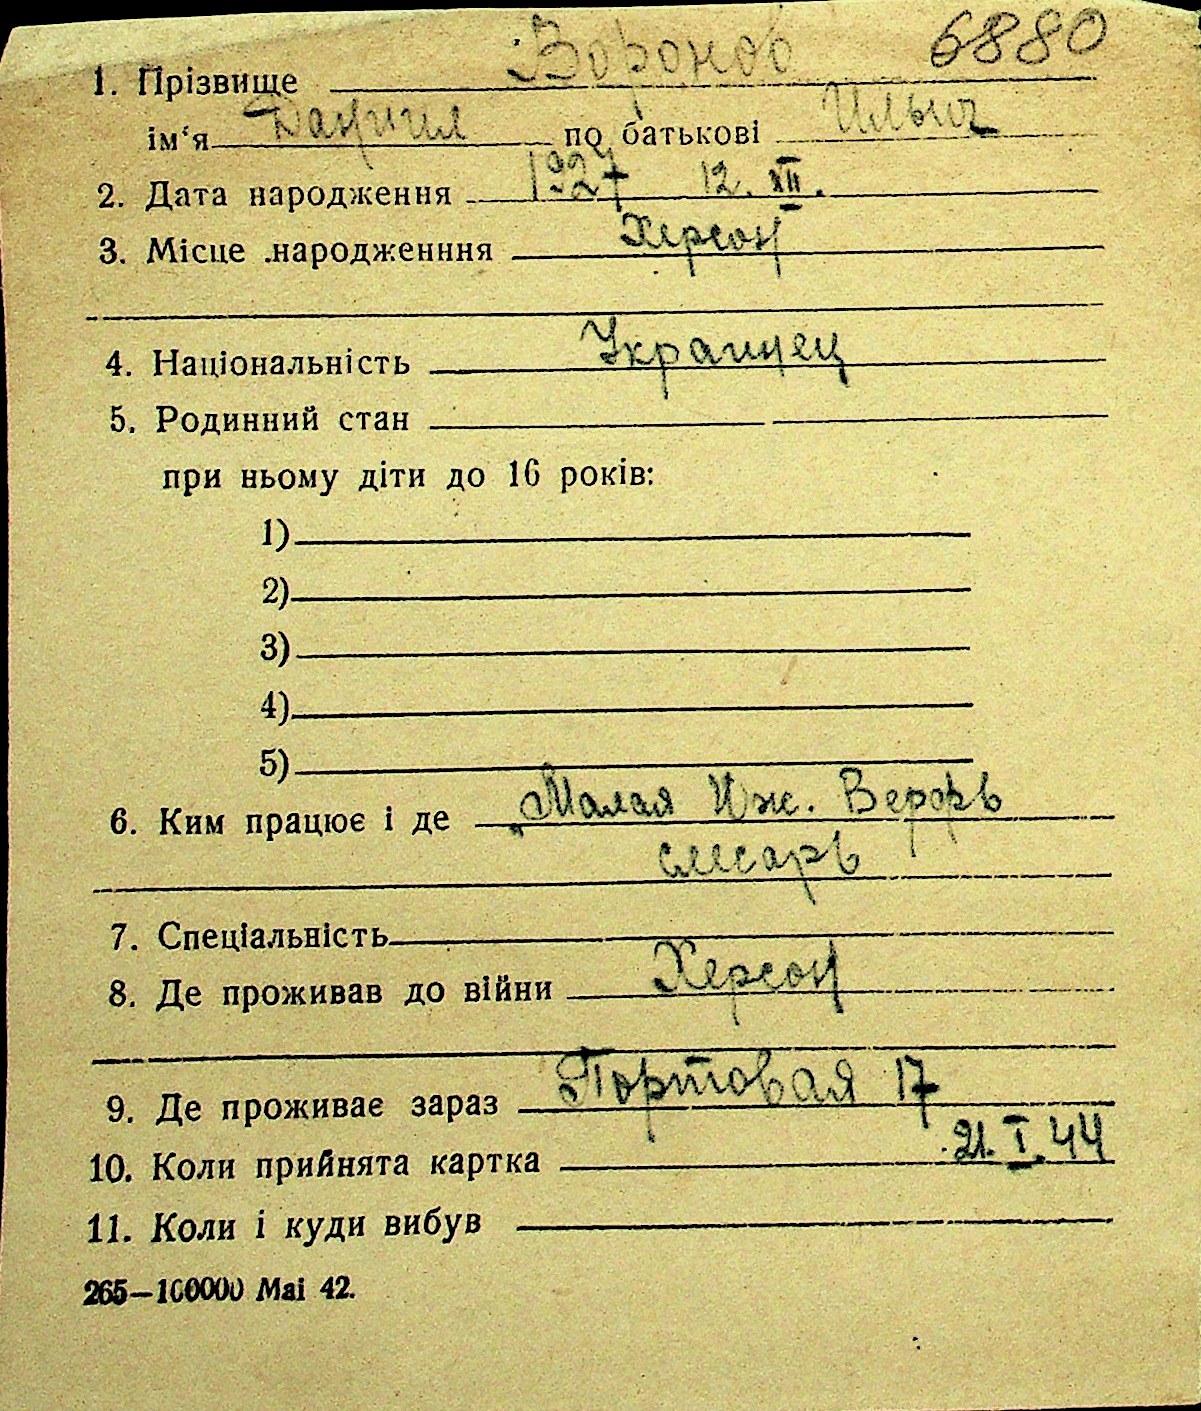 6880
1. Прізвище Воронов
ім‘я Даниил по батькові Ильич
2. Дата народження 1927 12. XII.
3. Місце народженння Херсон
4. Національність Украинец
5. Родинний стан
при ньому діти до 16 років:
1)
2)
3)
4)
5)
6. Ким працює і де Малая Иж. Верфрь
слесарь
7. Спеціальність
8. Де проживав до війни Херсон
9. Де проживає зараз Портовая 17
10. Коли прийнята картка 21. I. 44
11. Коли і куди вибув
265—100000 Mai 42.